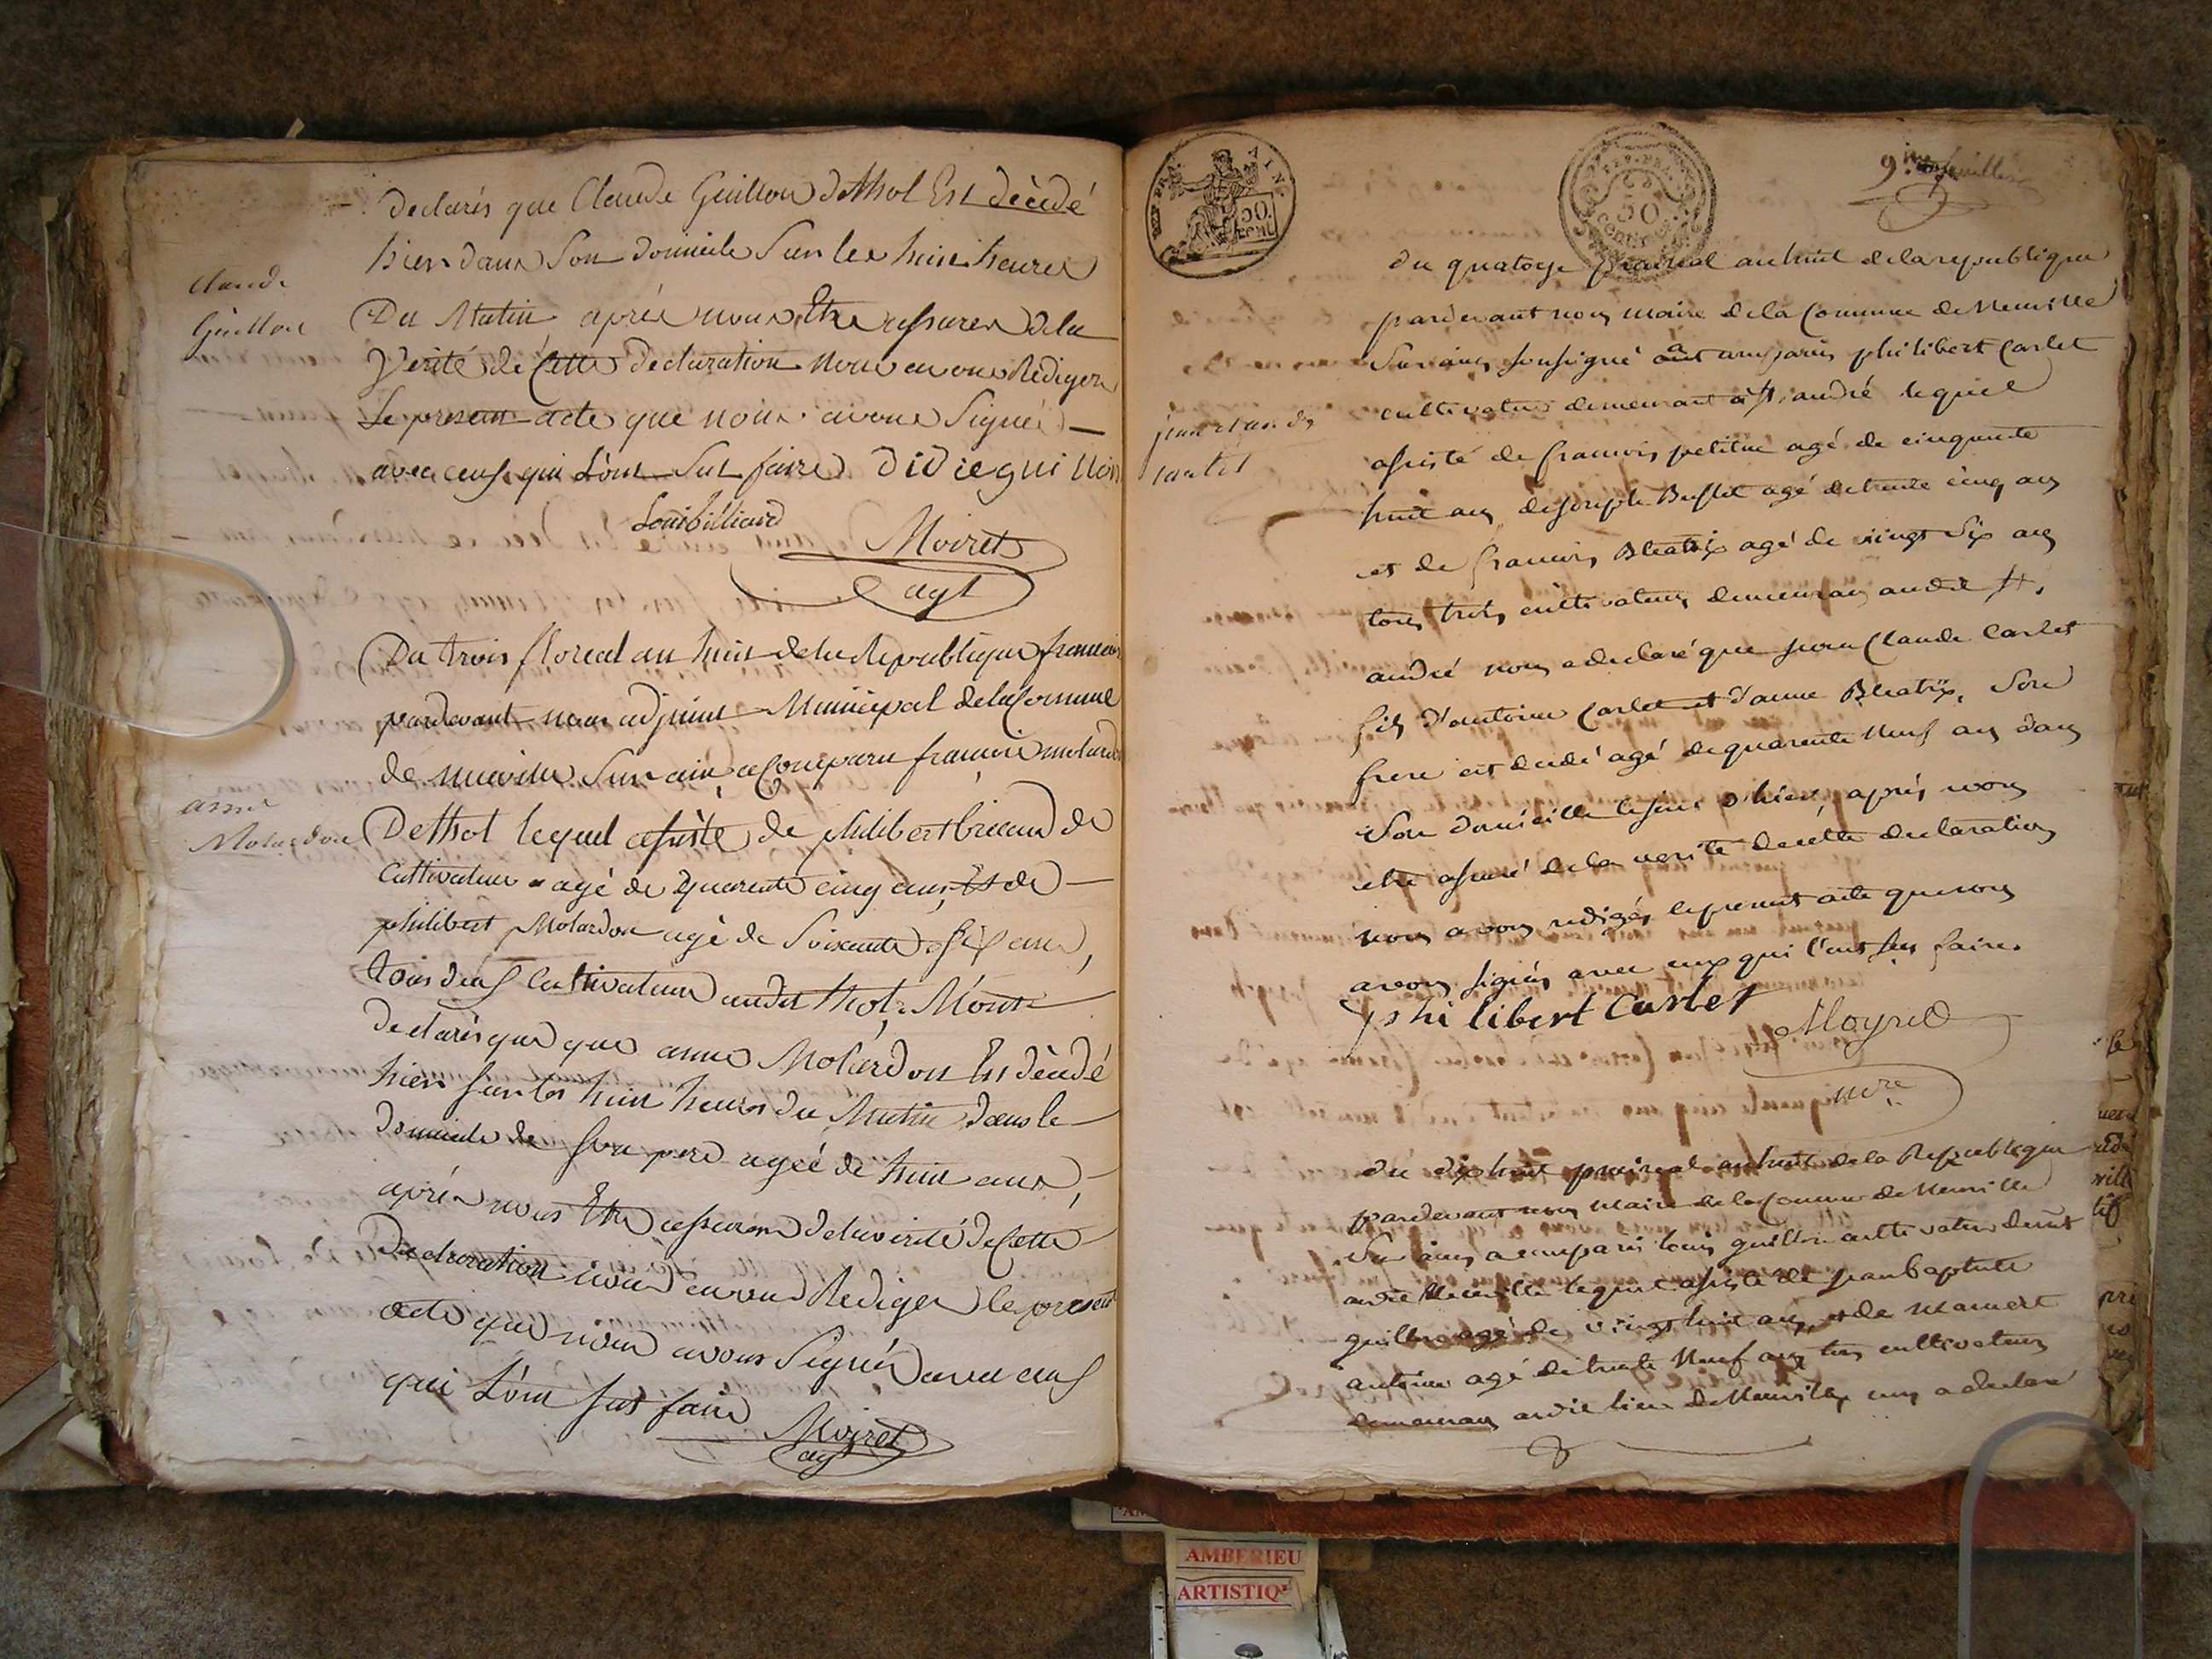 Declarés que Claude Guillon de thol Est décédé
hier dans Son domicile Sur les huit heures
Claude
Guillon
Du Matin après nous Etre assurer de la
Verité de Cette declaration nous avons Rediger
Le present acte que nous avons Signés
avec ceux qui L'ont Sut faire Didie guillon
Louis billiard
Moiret
agt
Du trois floreal an huit de la Republique francais
pardevant nous adjoint Municipal de la Commune
de neuville Sur ain, a Comparu francois molardon
anne
Molardon
De thol lequel assisté de philibert de
Cultivateur agé de Quarente cinq ans, Et de
philibert Molardon agé de Soixante Six ans,
tous deux Cultivateurs audit thol, M'ont
Declarés que que anne Molardon Est décédé
hier sur les huit heures du Matin dans le
domicile de son pere ageé de huit ans,
après nous Etre assurer de la verité de Cette
Declaration nous avons Rediger le present
acte que nous avons Signés avec ceux
qui L'ont sut faire
Moiret
agt
REP. FRA. AIN
50 CENT
50
Centimes
9.me feuillet
du quatorze prairial an huit de la republique
pardevant nous maire de la Commune de Neuville
Sur ain, soussigné a comparus philibert Carlet
cultivateur demeurant a st. andré lequel
jean claude
carlet
assisté de francois petitne agé de cinquante
huit ans de joseph Buffet agé de trente cinq ans
et de francois Bleatrix agé de vingt Six ans
tous trois cultivateurs demeurans audit st.
andré nous a declaré que jean Claude Carlet
fils d'antoine Carlet et d'anne Bleatrix, Son
frere est decedé agé de quarente Neuf ans dans
Son domicille le jour d'hier, après nous
etre assuré de la verité de cette declaration
nous avons redigés le present acte que nous
avons signés avec eux qui l'ont su faire.
philibert Carlet
Moyret
mre
du dix huit prairial an huit de la Republique
pardevant nous Maire de la Commune de Neuville
Sur ain, a comparus louis guillon cultivateur
Neuville lequel assisté de jean baptiste
guillon agé de vingt huit ans, et de Mamert
antoine agé de trente Neuf ans tous cultivateurs
demeurans lieu de Neuville, nous a declaré
AMBERIEU
ARTISTIQ